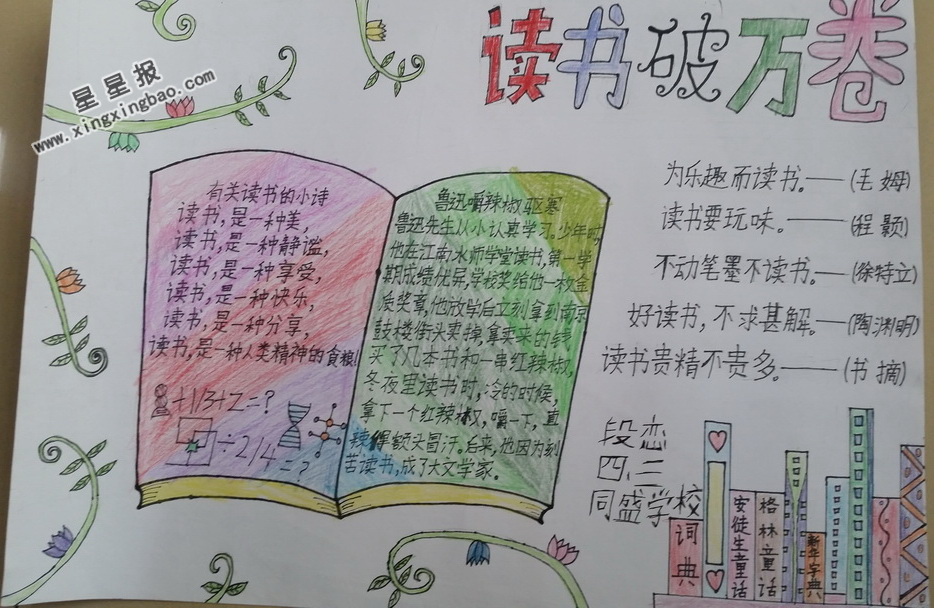 读书破万卷
星星报
www.xingxingbao.com
有关读书的小诗
读书,是一种美,
读书,是一种静谧,
读书,是一种享受,
读书,是一种快乐,
读书,是一种分享,
读书,是一种人类精神的食粮!
+1/3+2=?
÷2/4=?
鲁迅嚼辣椒驱寒
鲁迅先生从小认真学习。少年时,
他在江南水师学堂读书,第一学
期成绩优异,学校奖给他一枚金
质奖章,他放学后立刻拿到南京
鼓楼街头卖掉,拿卖来的钱
买了几本书和一串红辣椒,
冬夜里读书时,冷的时候,
拿下一个红辣椒,嚼一下,直
辣得额头冒汗。后来,他因为刻
苦读书,成了大文学家。
为乐趣而读书。——(毛姆)
读书要玩味。——(程颢)
不动笔墨不读书。——(徐特立)
好读书,不求甚解。——(陶渊明)
读书贵精不贵多。——(书摘)
段恋
四,三
同盛学校
词典
安徒生童话
格林童话
新华字典